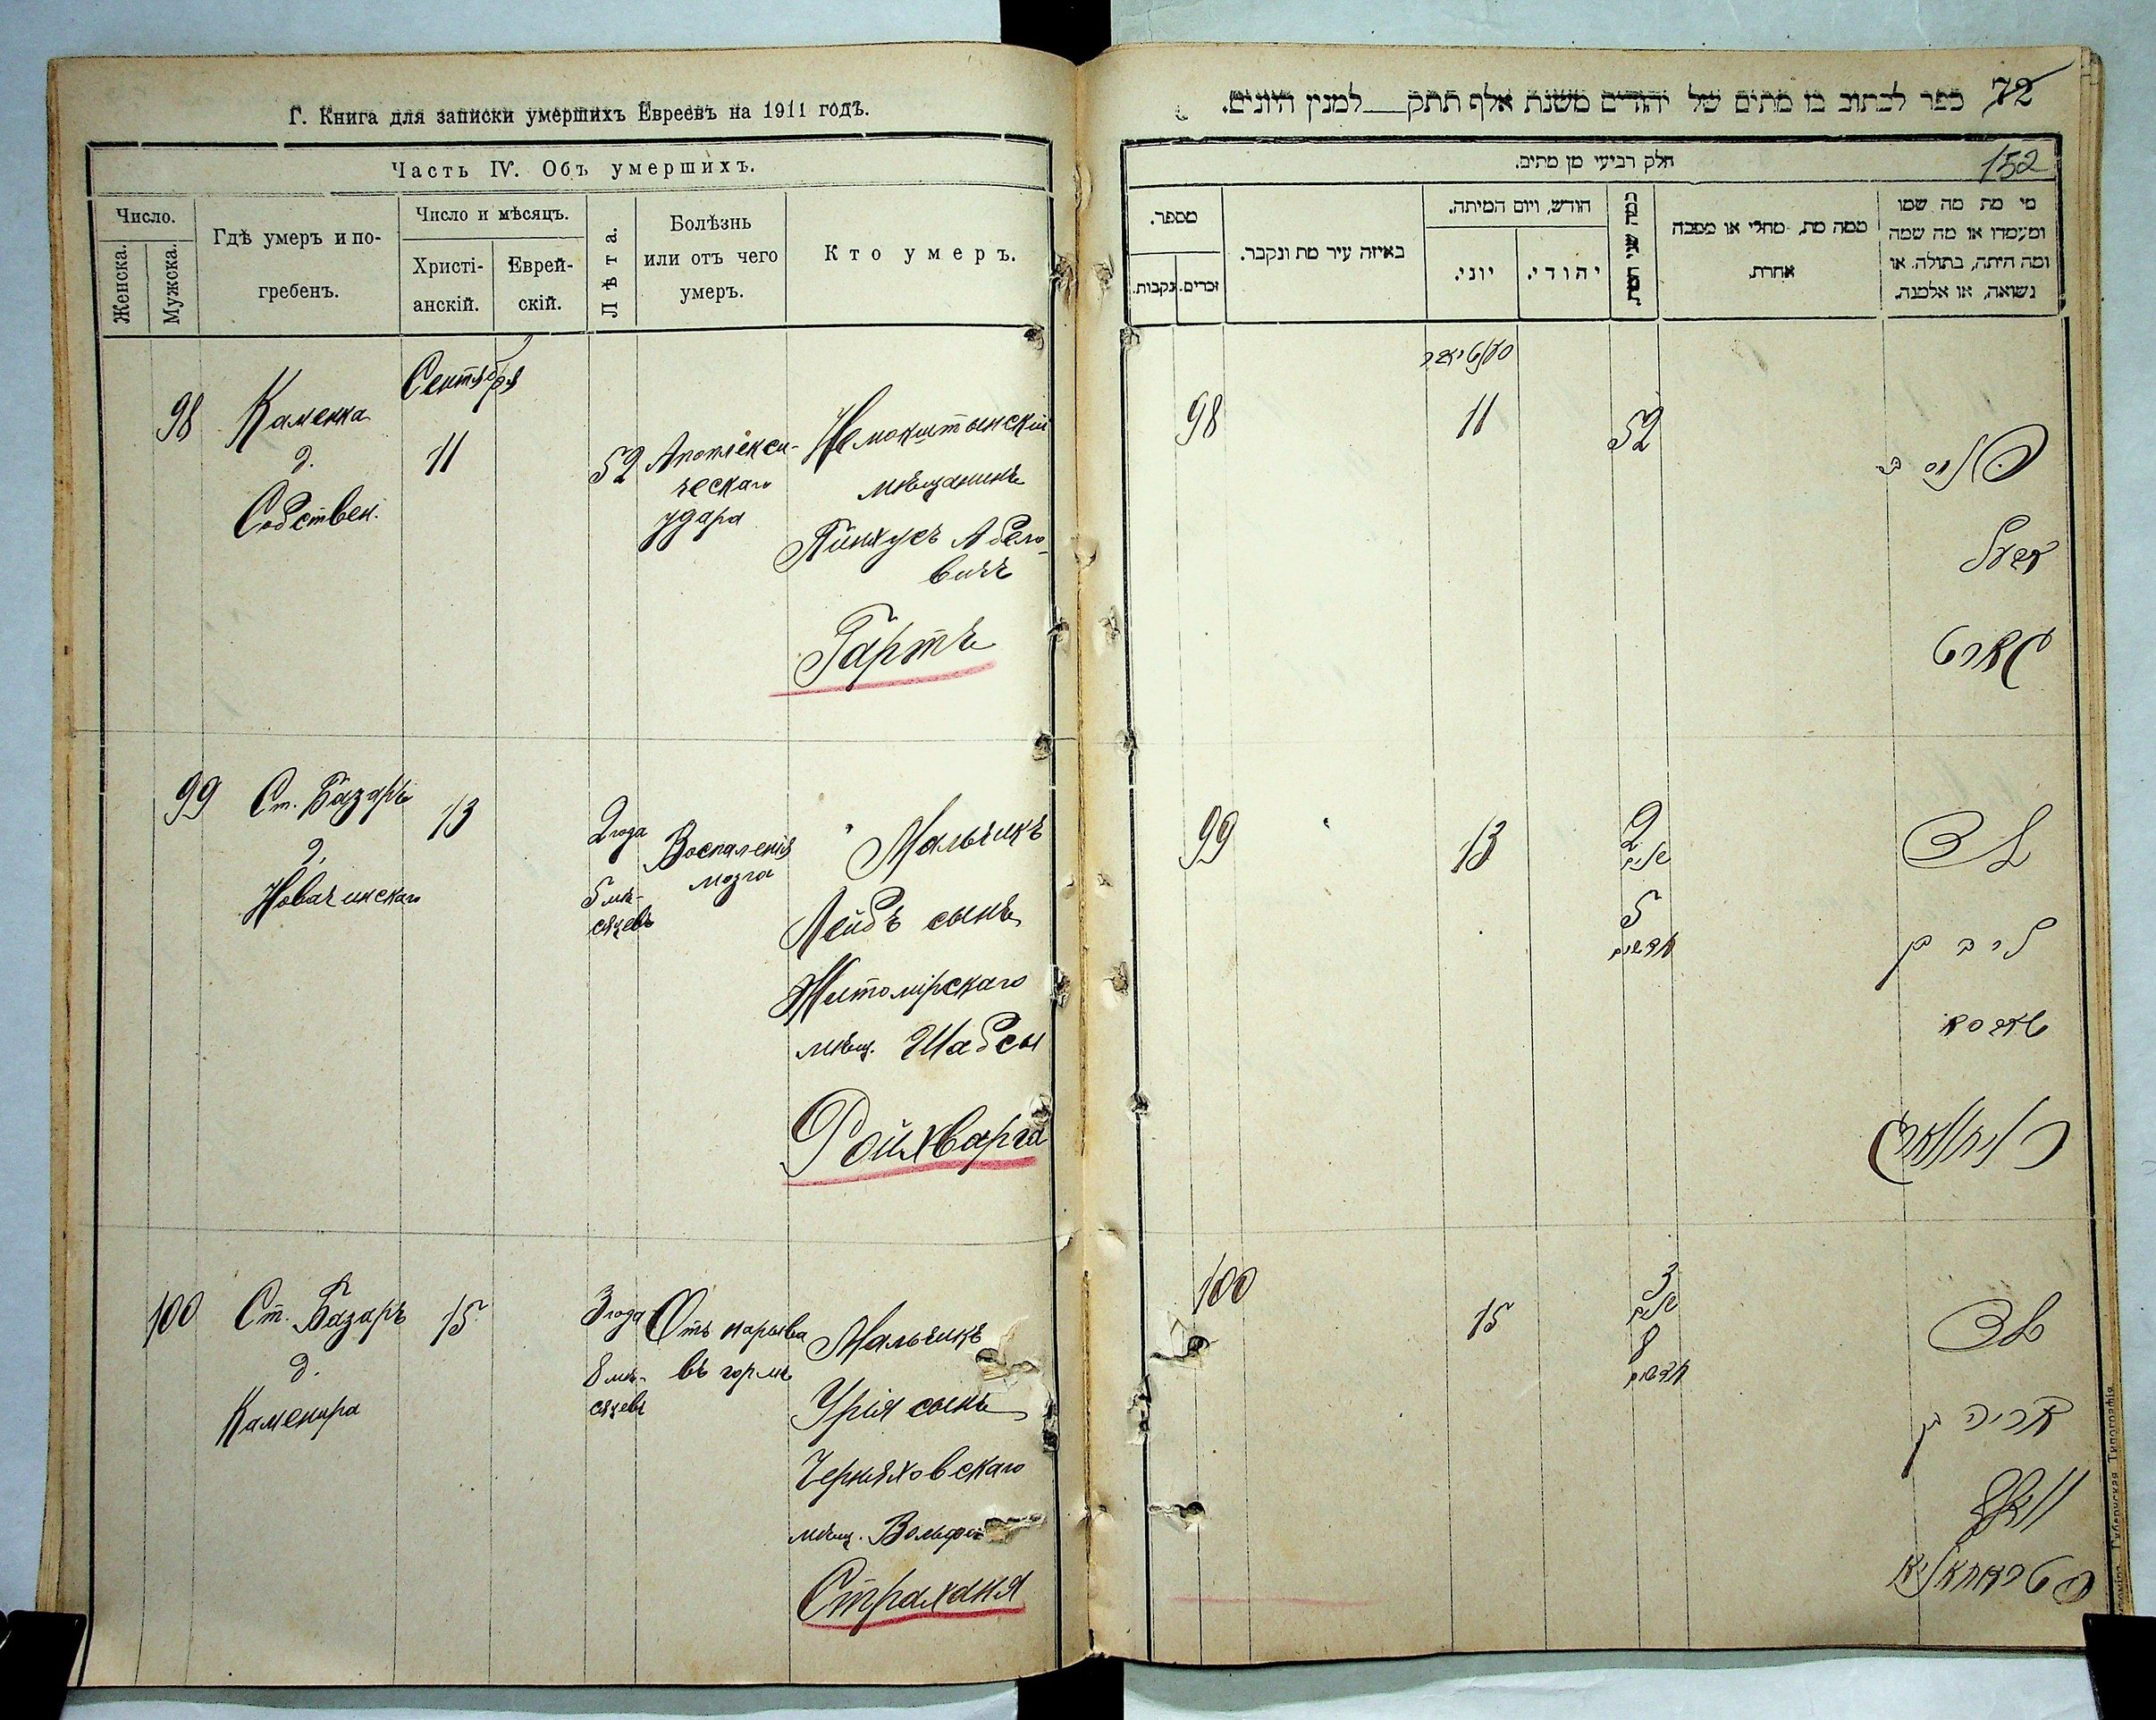 Г. Книга для записки умершихъ Евреевъ на 1911 годъ.
Часть IV. Объ умершихъ.
Число.
Женска.
Мужска.
Гдѣ умеръ и по-
гребенъ.
Число и мѣсяцъ.
Христі-
анскій.
Еврей-
скій.
Лѣта.
Болѣзнь
или отъ чего
умеръ.
Кто умеръ.
Сентября
98
Каменка
д.
Собствен.
11
52
Апоплекси-
ческаго
удара
Немокштынскій
мѣщанинъ
Пинхусъ Абело-
вичъ
Гартъ
99
Ст. Базаръ
д.
Новачинскаго
13
2 года
5 мѣ-
сяцевъ
Воспаленія
мозга
Мальчикъ
Лейбъ сынъ
Житомірскаго
мѣщ. Шабсы
Ройхварга
100
Ст. Базаръ
д.
Каменира
15
3 года
8 мѣ-
сяцевъ
Отъ нарыва
въ горлѣ
Мальчикъ
Урія сынъ
Черняховскаго
мѣщ. Вольфа
Страханя
72
ספר לכתוב בו מתים של יהודים משנת אלף תתק למנין היונים.
חלק רביעי מן מתים.
152
מספר.
זכרים.
נקבות.
באיזה עיר מת ונקבר.
חודש, ויום המיתה.
יוני.
יהודי.
כמה שני המת
ממה מת, מחלי או מסבה
אחרת.
מי מת מה שמו
ומעמדו או מה שמה
ומה היתה, בתולה, או
נשואה, או אלמנה.
98
11
52
פנחס ב
אבעל
גארט
99
13
2
שנים
5
חדשים
ילד
ליב בן
שאבסא
100
15
3
שנים
8
חדשים
ילד
אוריה בן
וואלף